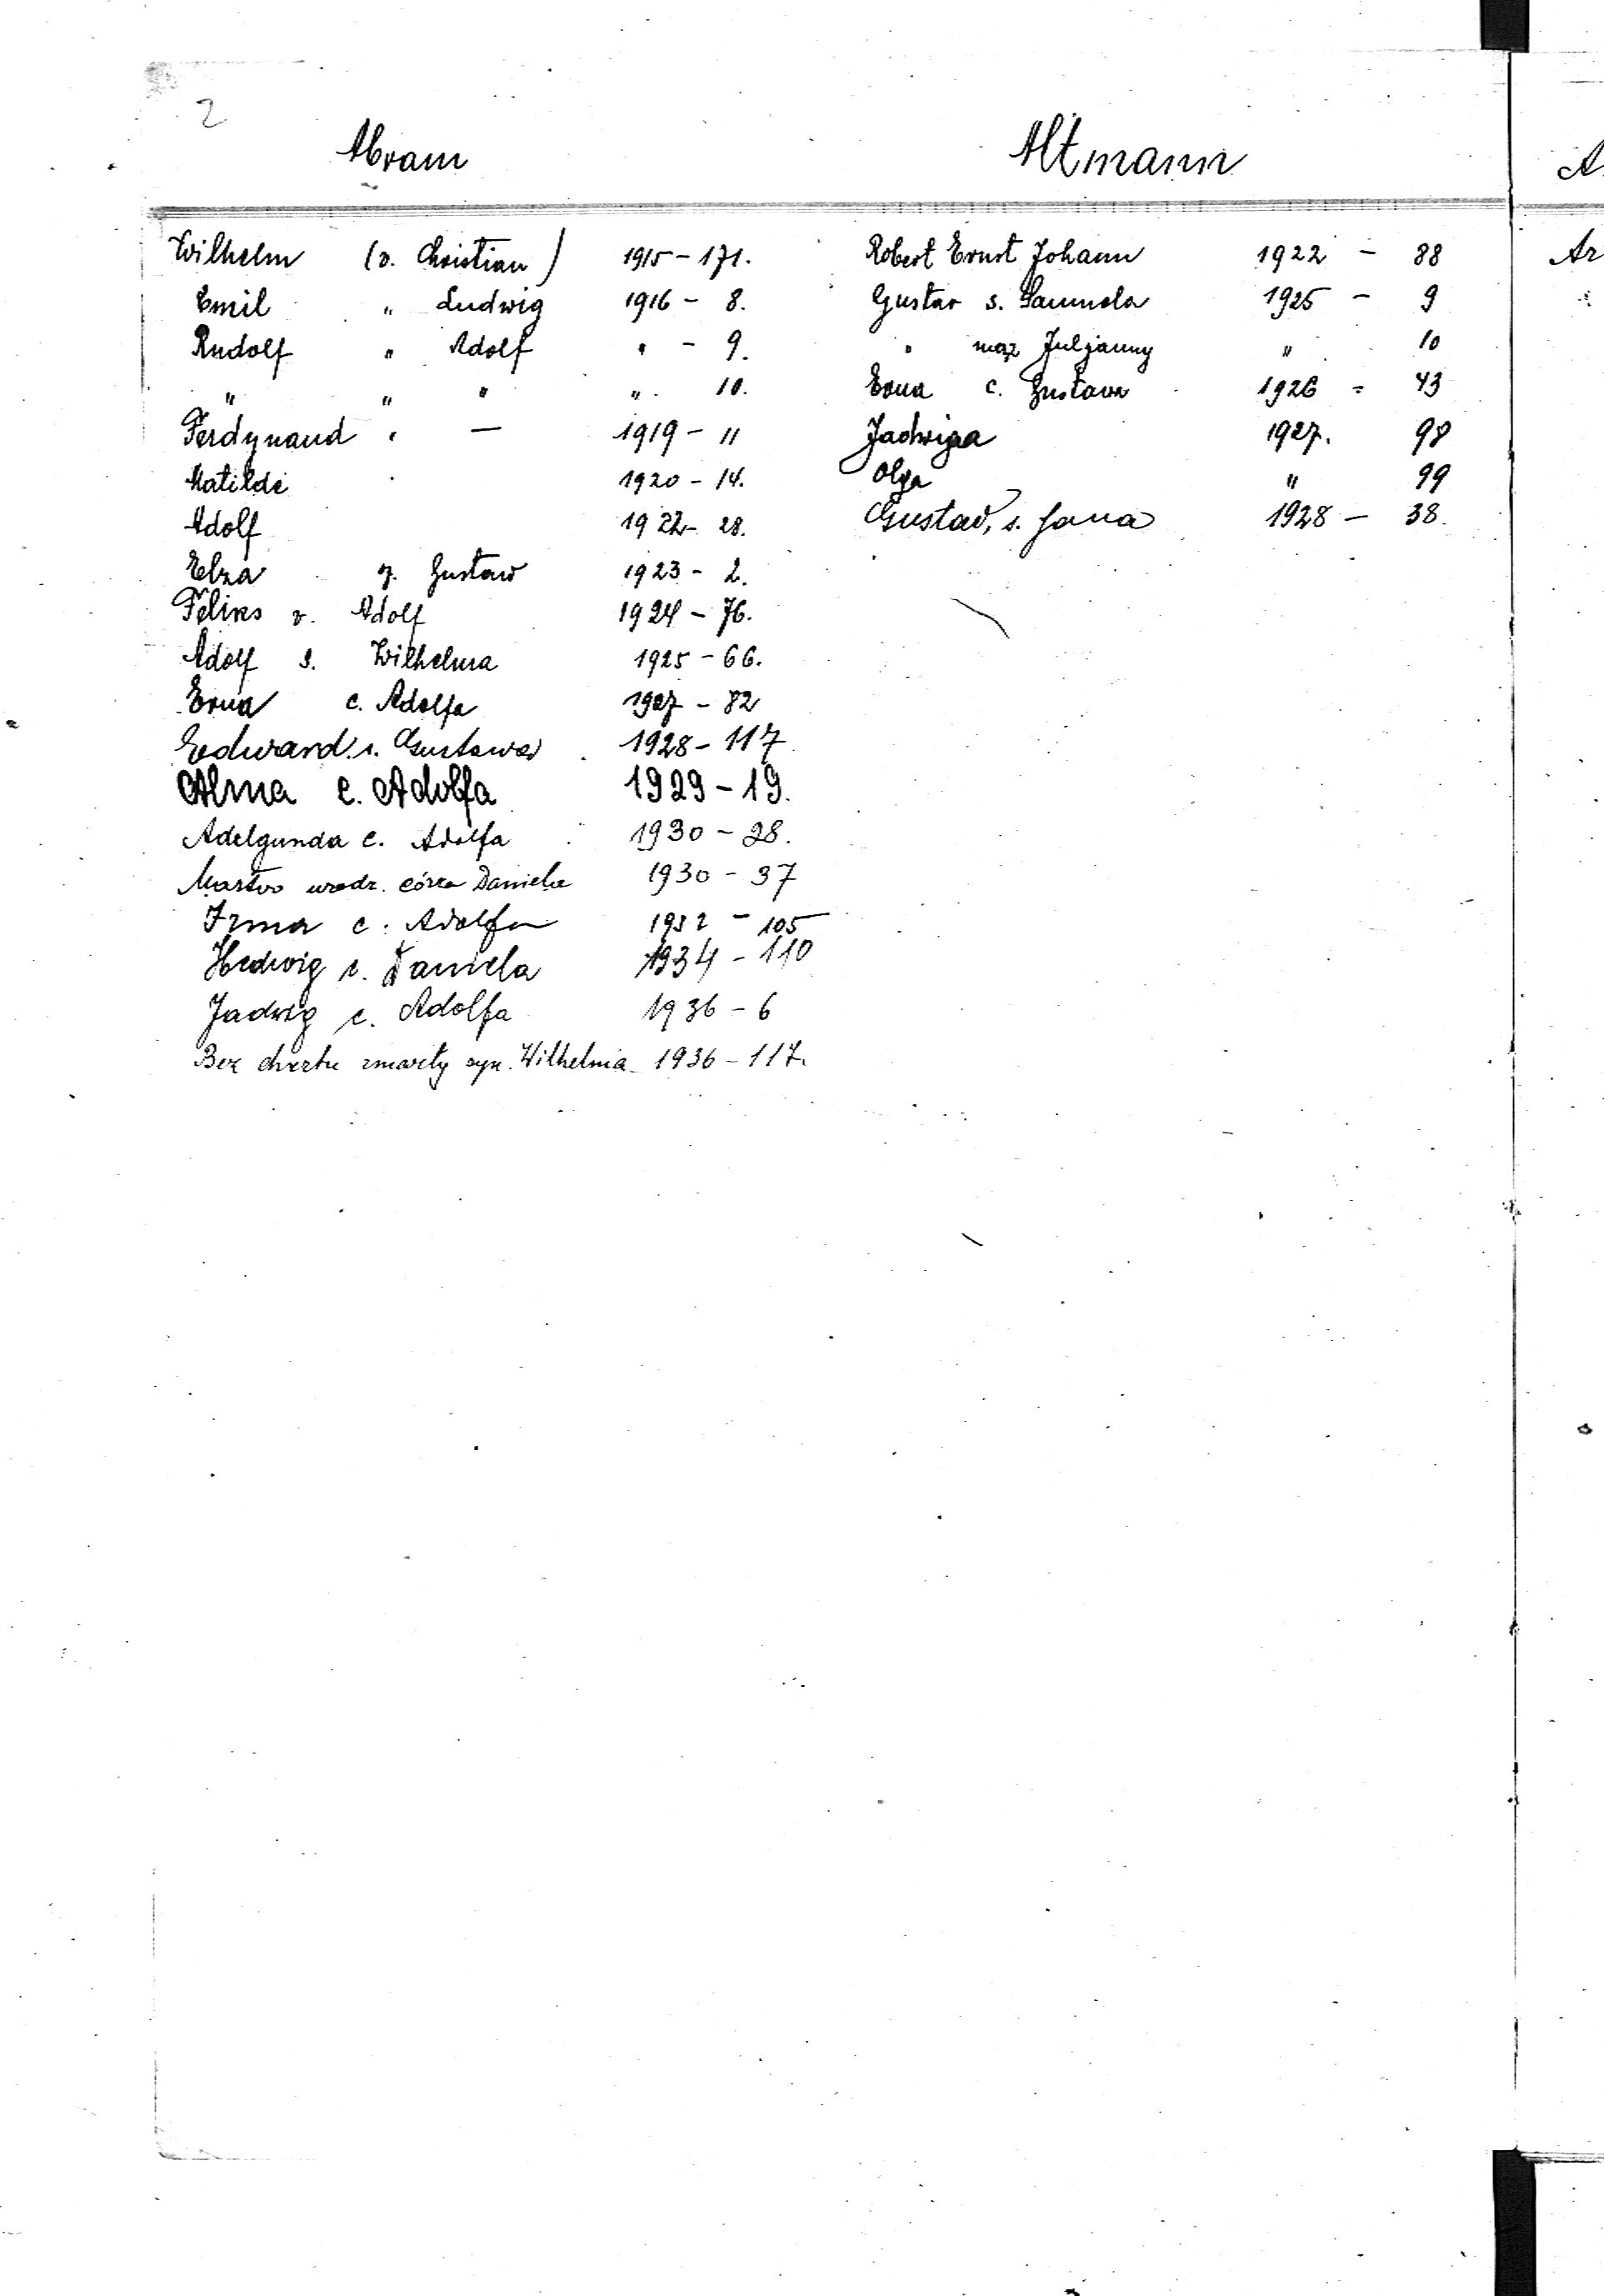 2
Abram
Wilhelm (v. Christian) 1915 - 171.
Emil " Ludwig 1916 - 8.
Rudolf " Adolf " - 9.
" " " " . 10.
Ferdynand " — 1919 - 11
Matilde 1920 - 14.
Adolf 1922 - 28.
Elza v. Gustaw 1923 - 2.
Feliks v. Adolf 1924 - 76.
Adolf s. Wilhelma 1925 - 66.
Erna c. Adolfa 1927 - 82
Edward s. Gustawa 1928 - 117
Alma c. Adolfa 1929 - 19.
Adelgunda c. Adolfa 1930 - 28.
Martwo urodz. córka Daniela 1930 - 37
Irma c. Adolfa 1932 - 105
Hedwig c. Daniela 1934 - 110
Jadwig c. Adolfa 1936 - 6
Bez chrztu zmarły syn. Wilhelma 1936 - 117.
Altmann
Robert Ernst Johann 1922 - 88
Gustav s. Samuela 1925 - 9
" mąż Juljanny " 10
Erna c. Gustava 1926 = 43
Jadwiga 1927. 98
Olga " 99
Gustav, s. Jana 1928 - 38.
A
Ar